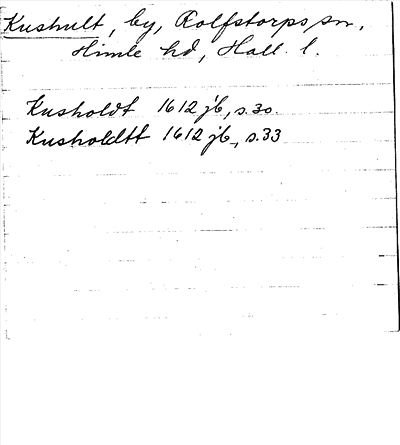 Kushult, by, Rolfstorps sn,
Himle hd, Hall. l.
Kusholdt 1612 jb, s.30.
Kusholdtt 1612 jb, s.33